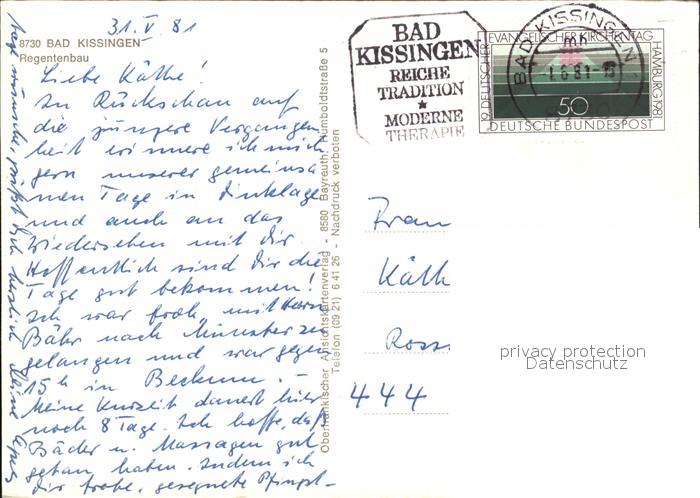 31. V. 81
8730 BAD KISSINGEN
Regentenbau
Liebe Käthe!
In Rückschau auf
die jüngere Vergangen
heit erinnere ich mich
gern unserer gemeinsa
men Tage in Dinklage
und auch an das
Wiedersehen mit Dir.
Hoffentlich sind Dir die
Tage gut bekommen!
Ich war froh, mit Herrn
Bähr nach Münster zu
gelangen und war gegen
15 h in Beckum. –
Meine Kurzeit dauert hier
noch 8 Tage. Ich hoffe, daß
Bäder u. Massagen gut
getan haben. Indem ich
Dir frohe, gesegnete Pfingst-
tage wünsche, grüßt Dich herzlich Deine
Oberfränkischer Ansichtskartenverlag - 8580 Bayreuth, Humboldtstraße 5
Telefon (09 21) 6 41 26 - Nachdruck verboten
BAD
KISSINGEN
REICHE
TRADITION
MODERNE
THERAPIE
BAD KISSINGEN
mh
-1.6.81-
19. DEUTSCHER EVANGELISCHER KIRCHENTAG HAMBURG 1981
50
DEUTSCHE BUNDESPOST
Frau
Käth
Ross
444
privacy protection
Datenschutz